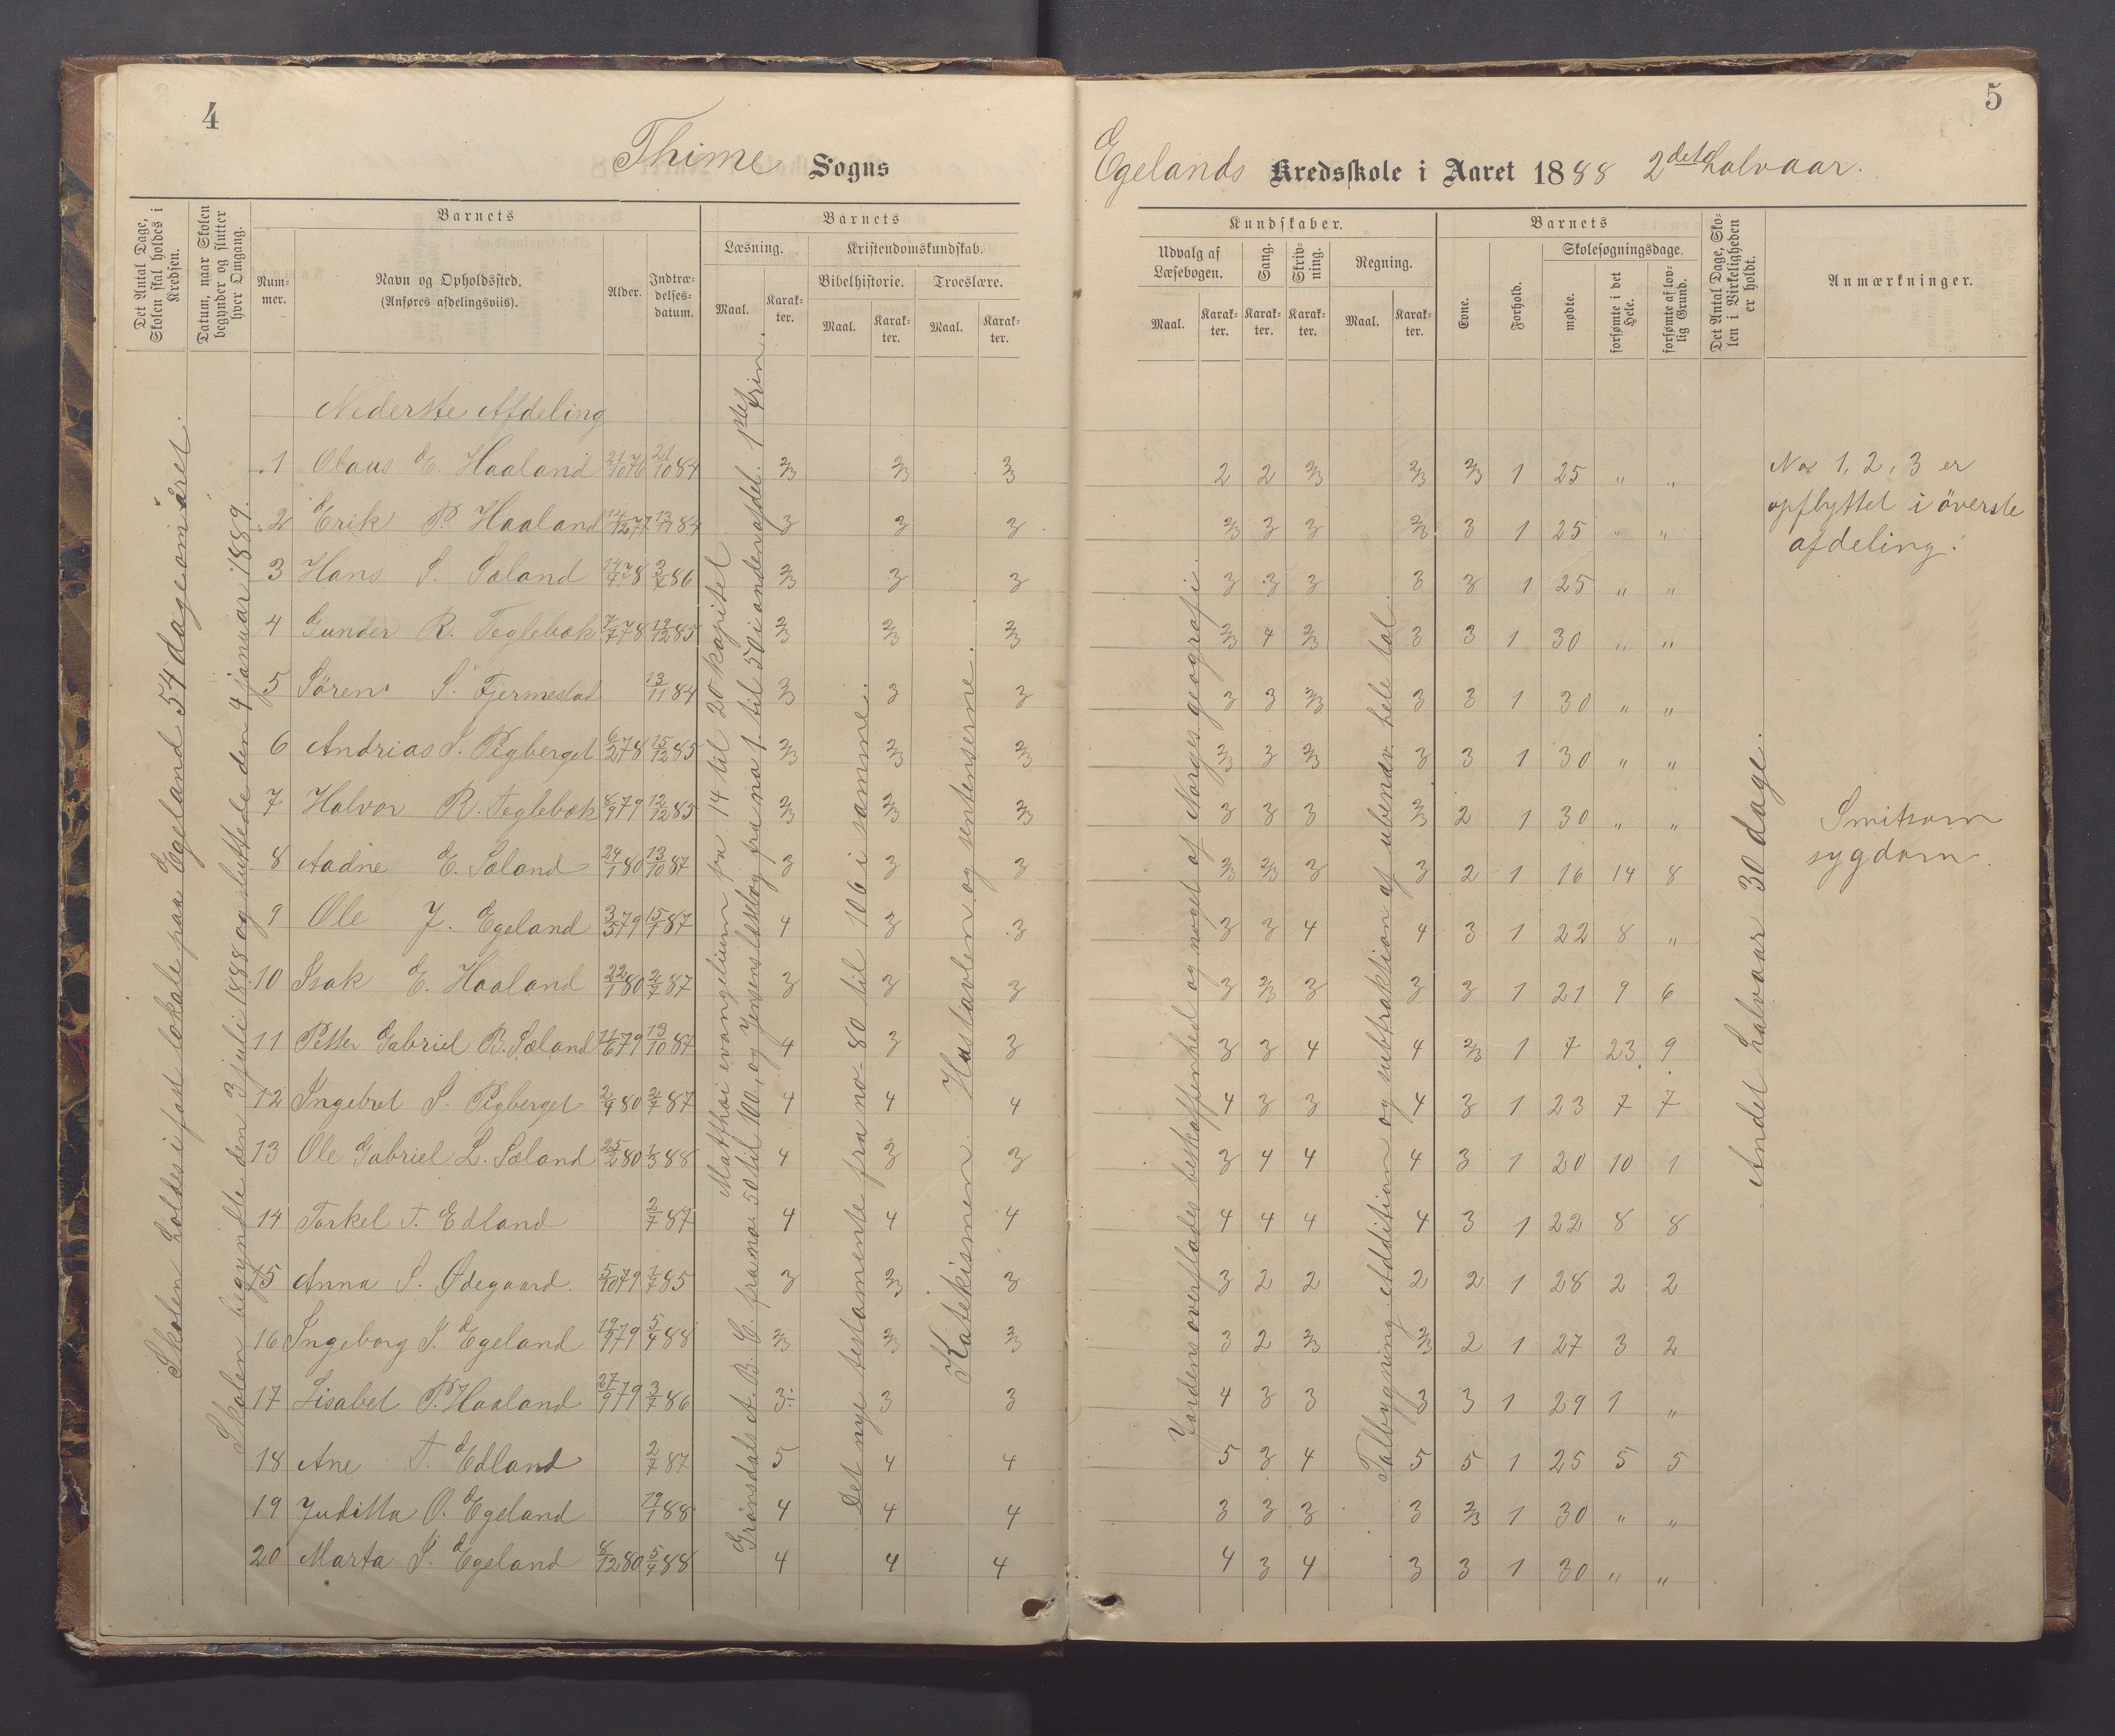 4
Thime Sogns
Det Antal Dage, Skolen skal holdes i Kredsen.
Datum, naar Skolen begynder og slutter hver Omgang.
Barnets
Num-mer.
Navn og Opholdssted.
(Anføres afdelingsviis).
Alder.
Indtræ-delses-datum.
Barnets
Læsning.
Kristendomskundskab.
Bibelhistorie.
Troeslære.
Maal.
Karak-ter.
Maal.
Karak-ter.
Maal.
Karak-ter.
Skolen holdes i fast lokale paa Egeland 54 dage om året.
Skolen begyndte den 3 juli 1888 og sluttede den 4 januar 1889.
Matthæi evangelium fra 14 til 20 kapitel
Grønsdals A. B. C. fra no. 50 til 100, og Jensens læsebog fra no 1. til 50 i anden afdel. 1ste trin.
Det nye testamente fra no- 80 til 106 i samme.
Katekismen. Hustavlen og sentenserne.
Nederste Afdeling
1 Olaus E. Haaland 21/10 76 21/10 84 2/3 2/3 2/3
2 Erik P. Haaland 14/12 77 13/11 84 3 3 3
3 Hans S. Sæland 14/4 78 3/7 86 2/3 3 3
4 Gunder R. Teglebæk 7/7 78 19/12 85 2/3 2/3 2/3
5 Sören S. Fjermestad 13/11 84 2/3 3 3
6 Andrias S. Rigberget 6/2 78 15/12 85 2/3 2/3 2/3
7 Halvor R. Teglebæk 8/9 79 12/12 85 2/3 2/3 2/3
8 Aadne E. Sæland 24/1 80 13/10 87 3 3 3
9 Ole J. Egeland 3/5 79 15/7 87 4 3 3
10 Isak E. Haaland 22/1 80 2/7 87 3 3 3
11 Petter Gabriel B. Sæland 11/6 79 13/10 87 4 3 3
12 Ingebret S. Rigberget 2/4 80 2/7 87 4 4 4
13 Ole Gabriel L. Sæland 25/2 80 1/3 88 4 3 3
14 Torkel T. Edland 2/7 87 4 4 4
15 Anna S. Ødegaard. 5/10 79 1/7 85 3 2/3 3
16 Ingeborg S. Egeland 19/9 79 5/4 88 2/3 2/3 2/3
17 Lisabet P. Haaland 27/9 79 3/7 86 3 3 3
18 Ane T. Edland 2/7 87 5 4 4
19 Juditta O. Egeland 19/1 88 4 4 4
20 Marta S. Egeland 8/12 80 5/4 88 4 4 4
5
Egelands Kredsskole i Aaret 1888 2det halvaar.
Kundskaber.
Udvalg af Læsebogen.
Sang.
Skriv-ning.
Regning.
Maal.
Karak-ter.
Karak-ter.
Karak-ter.
Maal.
Karak-ter.
Barnets
Evne.
Forhold.
Skolesøgningsdage.
mødte.
forsømte i det Hele.
forsømte af lov-lig Grund.
Det Antal Dage, Sko-len i Virkeligheden er holdt.
Anmærkninger.
Jordens overflades beskaffenhed og noget af Norges geografi.
Talbygning. Addition og subtraktion af ubenævn. hele tal.
Andet halvaar 30 dage.
2 2 2/3 2/3 2/3 1 25 " "
2/3 3 3 2/3 3 1 25 " "
3 3 3 3 3 1 25 " "
2/3 4 2/3 3 3 1 30 " "
3 3 2/3 3 3 1 30 " "
2/3 3 2/3 3 3 1 30 " "
3 3 3 2/3 2 1 30 " "
2/3 2/3 3 3 2 1 16 14 8
3 3 4 4 3 1 22 8 "
3 2/3 3 3 3 1 21 9 6
3 3 4 4 2/3 1 7 23 9
4 3 3 4 3 1 23 7 7
3 4 4 4 3 1 20 10 1
4 4 4 4 3 1 22 8 8
3 2 2 2 2 1 28 2 2
3 2 2/3 2/3 2 1 27 3 2
4 3 3 3 3 1 29 1 "
5 3 4 5 5 1 25 5 5
3 3 3 3 2/3 1 30 " "
4 3 4 3 3 1 30 " "
No 1, 2, 3 er
opflyttet i överste
afdeling.
Smitsom
sygdom.